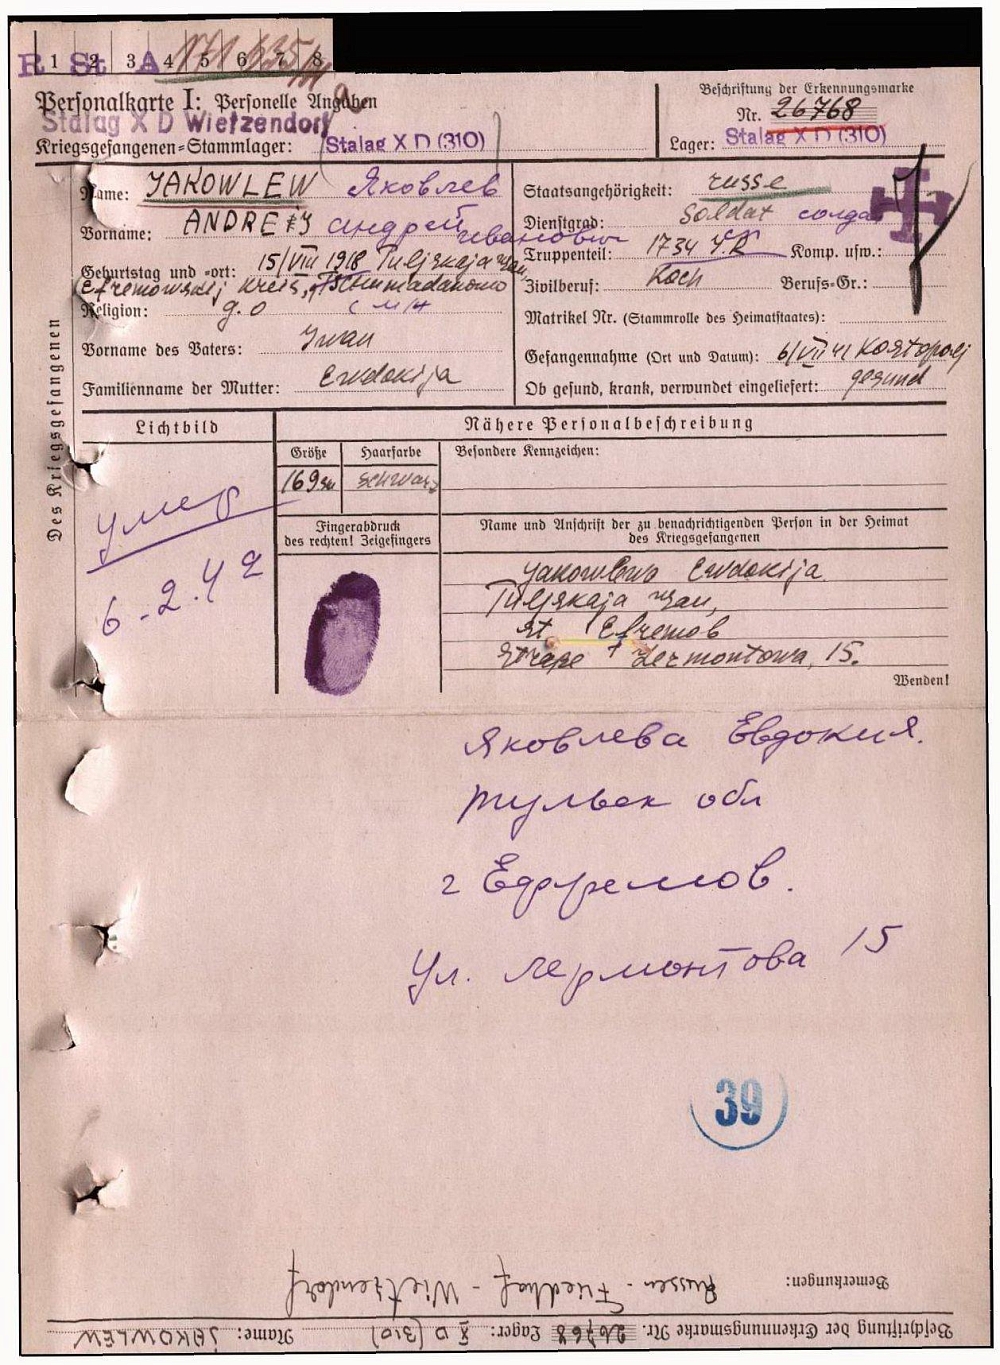 R St A
1 2 3 4 5 6 7 8
Personalkarte I: Personelle Angaben
Stalag X D Wietzendorf
Kriegsgefangenen=Stammlager: Stalag X D (310)
Beschriftung der Erkennungsmarke
Nr. 26768
Lager: Stalag X D (310)
Des Kriegsgefangenen
Name: JAKOWLEW Яковлев
Vorname: ANDREJ андрей Иванович
Geburtstag und =ort: 15/VIII 1918 Tuljskaja
Efremowskij Kreis,
Religion: g.o
Vorname des Vaters: Iwan
Familienname der Mutter: Ewdokija
Staatsangehörigkeit: russe
Dienstgrad: Soldat солдат
Truppenteil: 1734 Komp. usw.:
Zivilberuf: Koch Berufs=Gr.:
Matrikel Nr. (Stammrolle des Heimatstaates):
Gefangennahme (Ort und Datum): 6/VII 41 Kostopolj
Ob gesund, krank, verwundet eingeliefert: gesund
Lichtbild
умер
6.2.42
Nähere Personalbeschreibung
Größe Haarfarbe Besondere Kennzeichen:
169 schwarz
Fingerabdruck
des rechten! Zeigefingers
Name und Anschrift der zu benachrichtigenden Person in der Heimat
des Kriegsgefangenen
Jakowlewa Ewdokija
Tuljskaja
st Efremob
Strase Lermontowa, 15.
Wenden!
Яковлева Евдокия.
тульск обл
г Ефремов.
ул. Лермонтова 15
39
Bemerkungen: Russen - Friedhof - Wietzendorf
Beschriftung der Erkennungsmarke Nr. 26768 Lager: X D (310) Name: JAKOWLEW